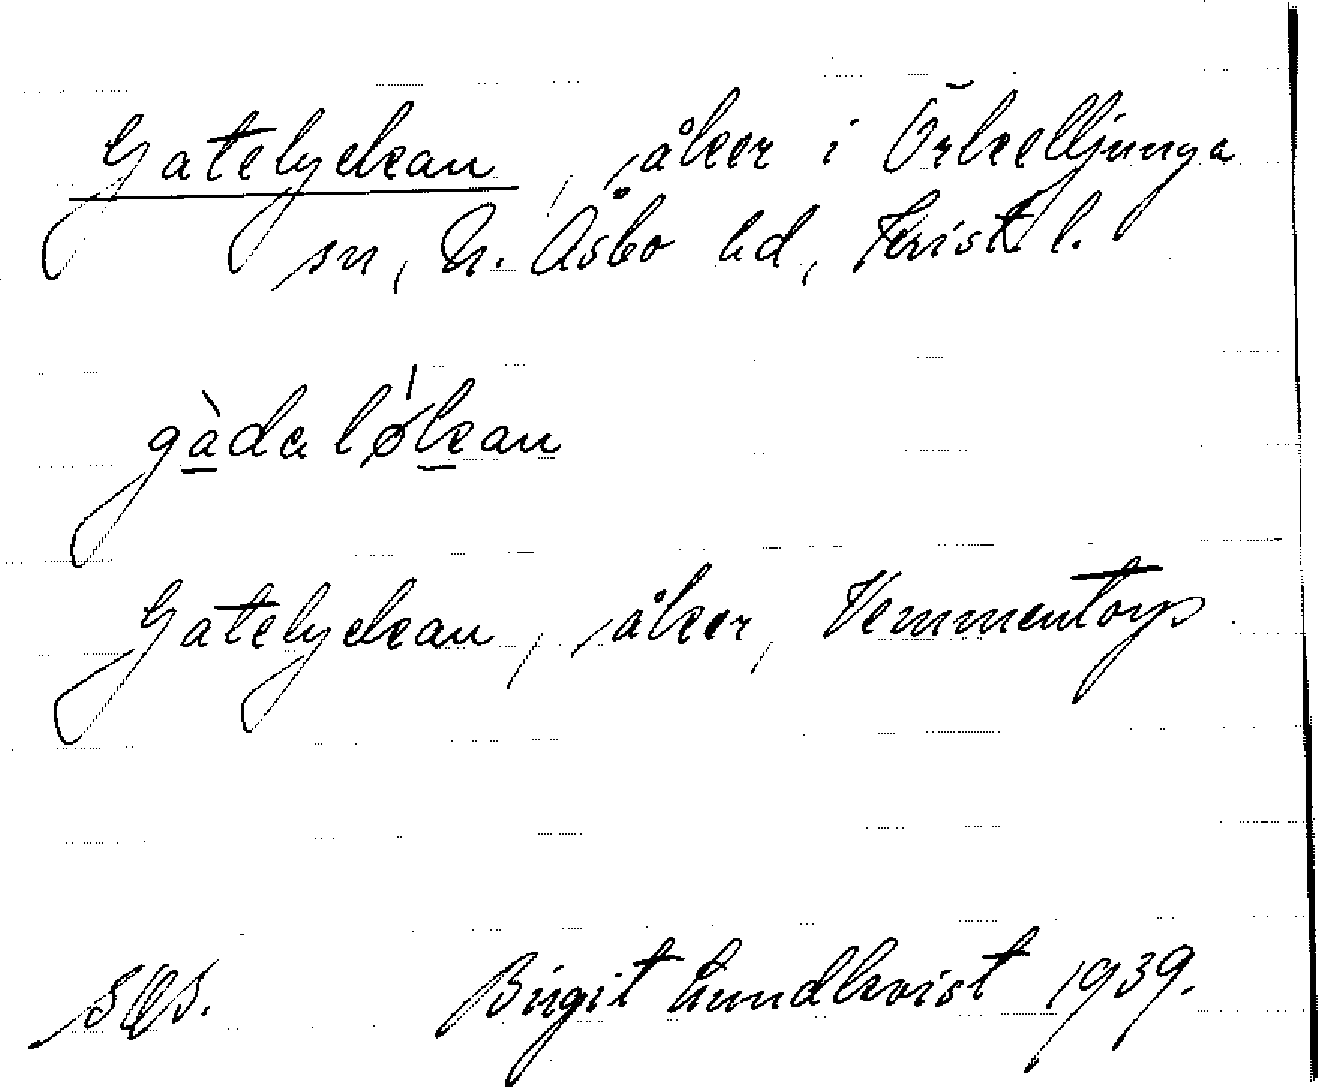 Gatelyckan, åker i Örkelljunga
sn, N. Åsbo hd, Krist. l.
gàdalǿkan
Gatelyckan, åker, Vemmentorp
Birgit Lundkvist 1939.